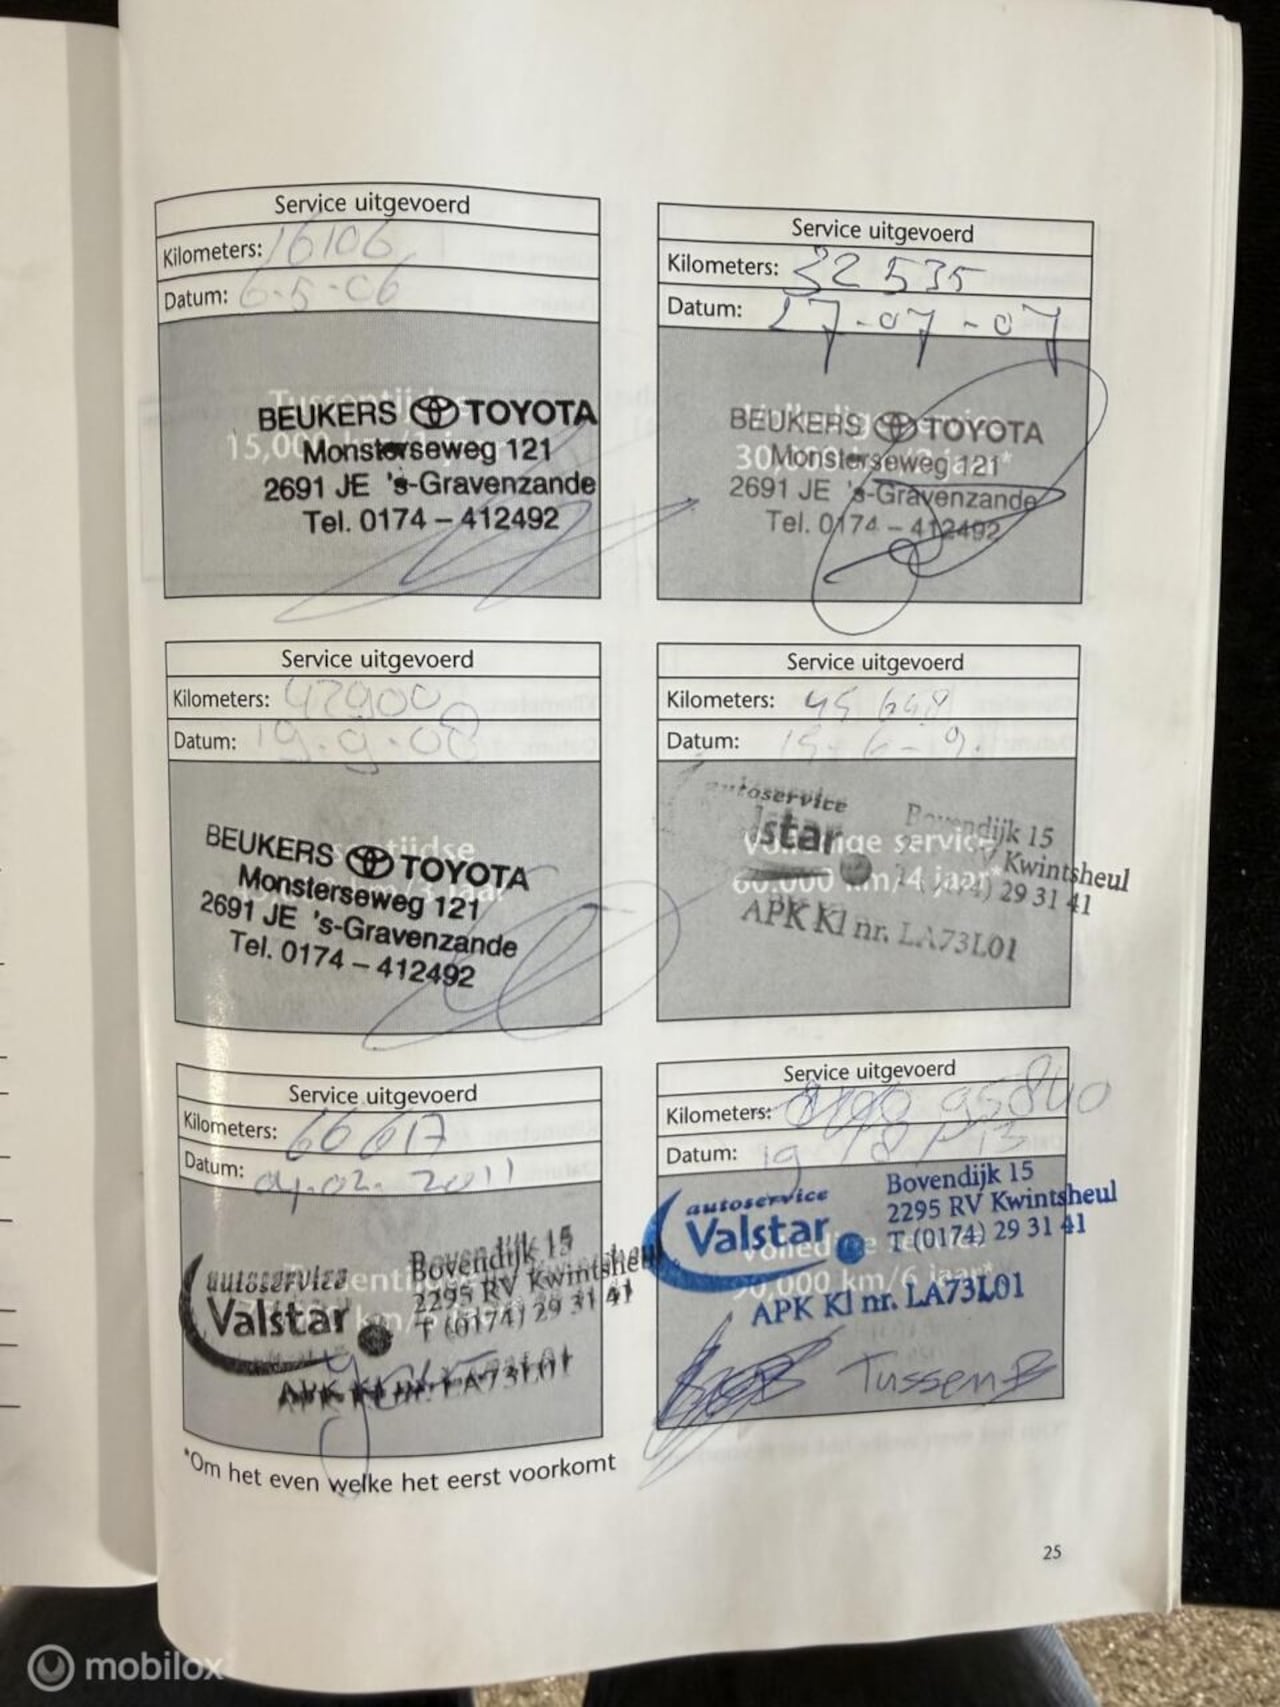 Service uitgevoerd
Kilometers: 16106
Datum: 6-5-06
BEUKERS TOYOTA
Monsterseweg 121
2691 JE 's-Gravenzande
Tel. 0174 – 412492
Service uitgevoerd
Kilometers: 32 535
Datum: 17-07-07
BEUKERS TOYOTA
30,000
Monsterseweg 121
2691 JE 's-Gravenzande
Tel. 0174 – 412492
Service uitgevoerd
Kilometers: 42900
Datum: 19.9.08
BEUKERS TOYOTA
Monsterseweg 121
2691 JE 's-Gravenzande
Tel. 0174 – 412492
Service uitgevoerd
Kilometers:
Datum:
autoservice
Bovendijk 15
Volledige service
Kwintsheul
60.000 km/4 jaar*
29 31 41
APK Kl nr. LA73L01
Service uitgevoerd
Kilometers: 66617
Datum: 04.02.2011
autoservice
Valstar
Bovendijk 15
2295 RV Kwintsheul
T (0174) 29 31 41
APK Kl nr. LA73L01
Service uitgevoerd
Kilometers: 95840
Datum: 19/8/13
autoservice
Valstar
Bovendijk 15
2295 RV Kwintsheul
T (0174) 29 31 41
Volledige service
90,000 km/6 jaar*
APK Kl nr. LA73L01
Tussen B
*Om het even welke het eerst voorkomt
25
mobilox